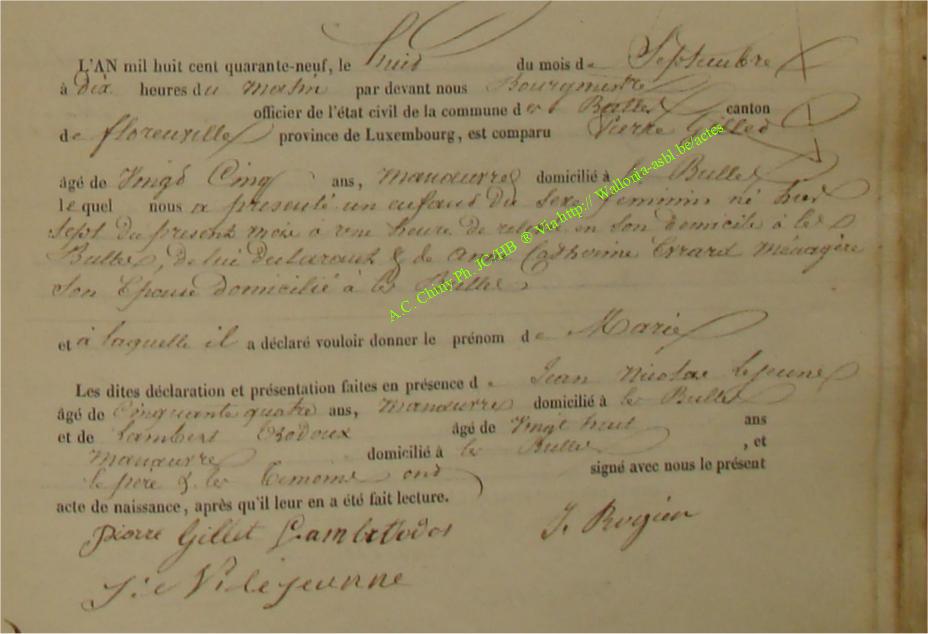 L'AN mil huit cent quarante-neuf, le huid du mois de Septembre
à dix heures du matin par devant nous Bourgmestre
officier de l'état civil de la commune de Bulles canton
de florenville province de Luxembourg, est comparu Pierre Gilled
âgé de Vingd Cinq ans, manœuvre domicilié à les Bulles
lequel nous a presenté un enfant du sexe feminin né hier
sept du present mois à une heure de en son domicile à les
Bulles, de lui declarant & de anne Catherine Errard Ménagère
son Epouse domicilié à les Bulles
et à laquelle il a déclaré vouloir donner le prénom de Marie
Les dites déclaration et présentation faites en présence de Jean Nicolas Lejeune
âgé de Cinquante quatre ans, manœuvre domicilié à les Bulles
et de Lambert âgé de Vingt huit ans
manœuvre domicilié à les Bulles, et
le père & les temoins ond signé avec nous le présent
acte de naissance, après qu'il leur en a été fait lecture.
pierre Gillet J. Rogier
A.C. Chiny Ph. JC/HB ® Via http:// Wallonia-asbl.be/actes